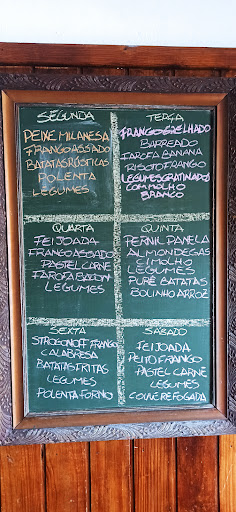 SEGUNDA
PEIXE MILANESA
FRANGO ASSADO
BATATAS RÚSTICAS
POLENTA
LEGUMES
TERÇA
FRANGO GRELHADO
BARREADO
FAROFA BANANA
RISOTO FRANGO
LEGUMES GRATINADOS
COM MOLHO
BRANCO
QUARTA
FEIJOADA
FRANGO ASSADO
PASTEL CARNE
FAROFA BACON
LEGUMES
QUINTA
PERNIL PANELA
ALMONDEGAS
C/MOLHO
LEGUMES
PURÊ BATATAS
BOLINHO ARROZ
SEXTA
STROGONOFF FRANGO
CALABRESA
BATATAS FRITAS
LEGUMES
POLENTA FORNO
SÁBADO
FEIJOADA
PEITO FRANGO
PASTEL CARNE
LEGUMES
COUVE REFOGADA